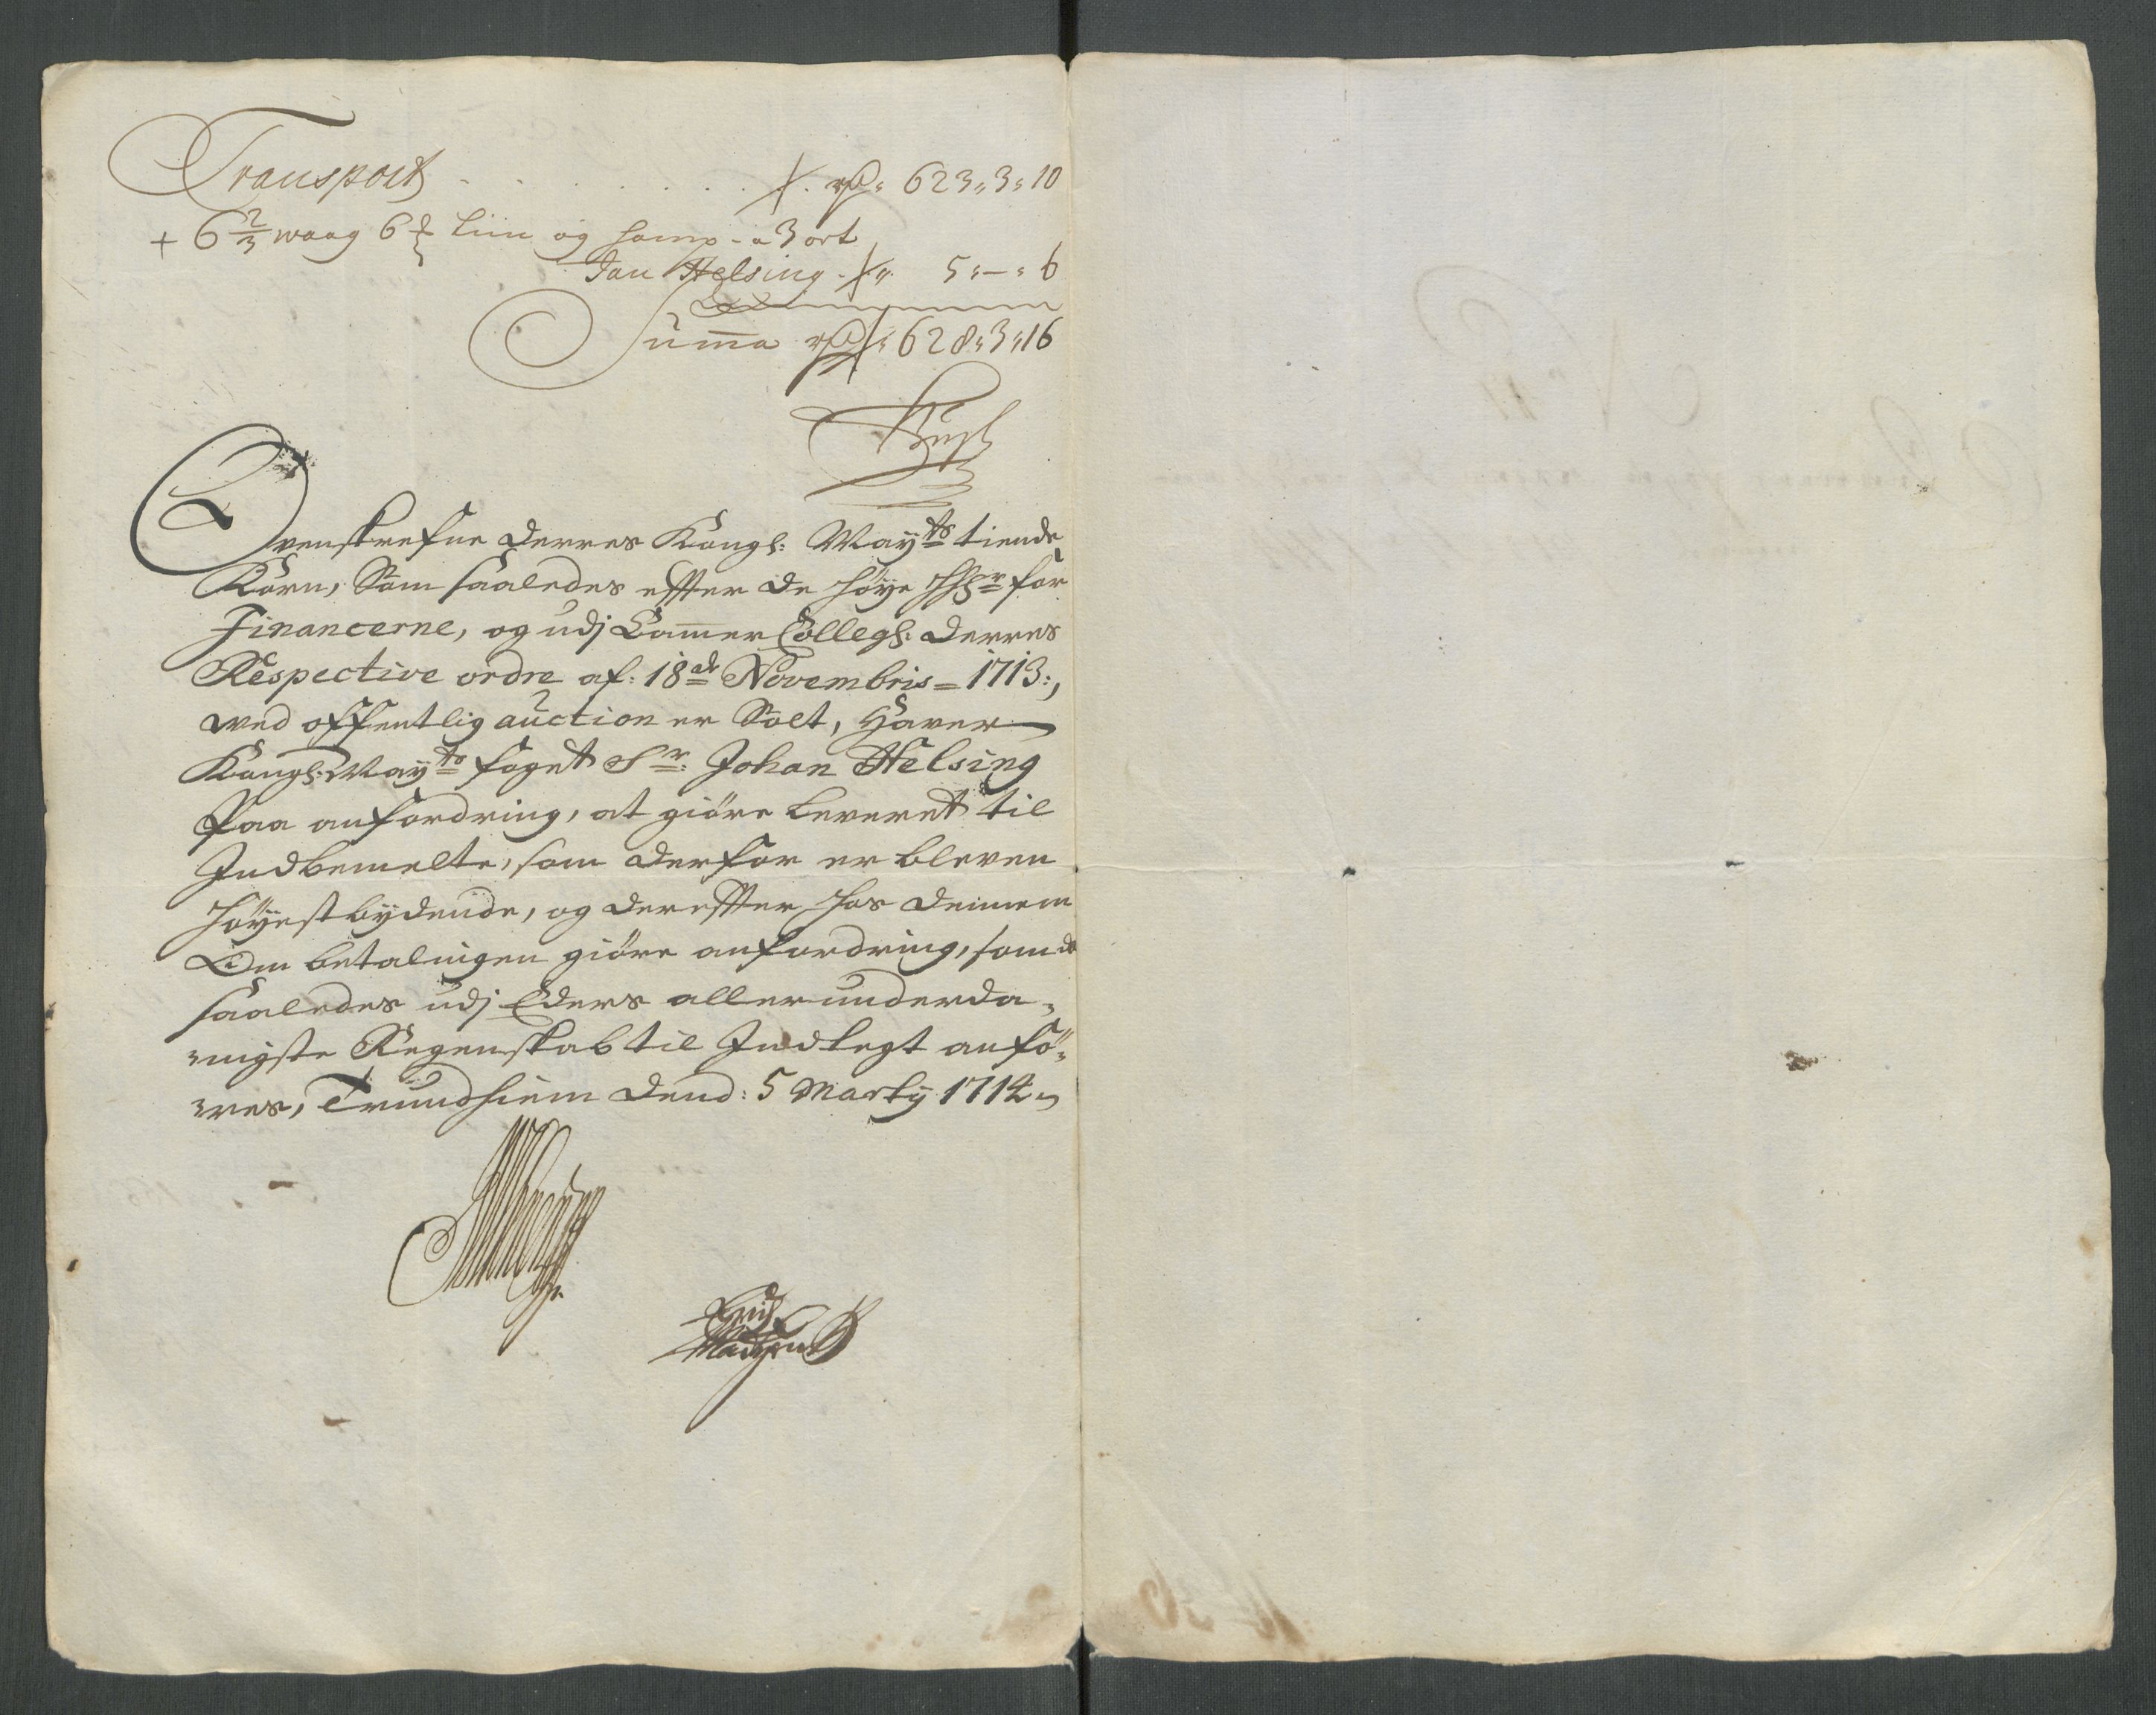 Transport . . . . . . . rd: 623„3„10
+ 6 2/3 waag 6 ℔ Liin og hamp - a 3 ort
Jan Helsing . „ 5„–„6
Suma rd: 628„3„16
Busch
Ovenskrefne Derres Kongl: Mayts tiende
Korn, Som saaledes effter de høye HHr for
Financerne, og udj Camer Collegh: Derres
Respective ordre af: 18de Novembris = 1713:,
wed offentlig auction er Solt, Hawer
Kongl: Mayts foget Sr: Johan Helsing
Paa anfordring, at giöre Leveret til
Indbemelte, som derfor er bleven
Höyestbydende, og dereffter hos dennem
Om betalningen giöre anfordring, som da
saaledes udj Eders allerunderda-
nigste Regenskab til Indtegt anfö-
res, Trundhiem dend: 5 Marty 1714